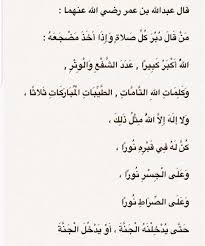 قال عبدالله بن عمر رضي الله عنهما :
مَنْ قَالَ دُبُرَ كُلِّ صَلَاةٍ وَإِذَا أَخَذَ مَضْجَعَهُ :
اللهُ أَكْبَرُ كَبِيرًا , عَدَدَ الشَّفْعِ وَالْوِتْرِ ,
وَكَلِمَاتِ اللهِ التَّامَّاتِ , الطَّيِّبَاتِ الْمُبَارَكَاتِ ثَلَاثًا ,
وَلَا إِلَهَ إِلَّا اللهُ مِثْلُ ذَلِكَ ,
كُنَّ لَهُ فِي قَبْرِهِ نُورًا ,
وَعَلَى الْجِسْرِ نُورًا ,
وَعَلَى الصِّرَاطِ نُورًا
حَتَّى يُدْخِلْنَهُ الْجَنَّةَ , أَوْ يَدْخُلَ الْجَنَّةَ